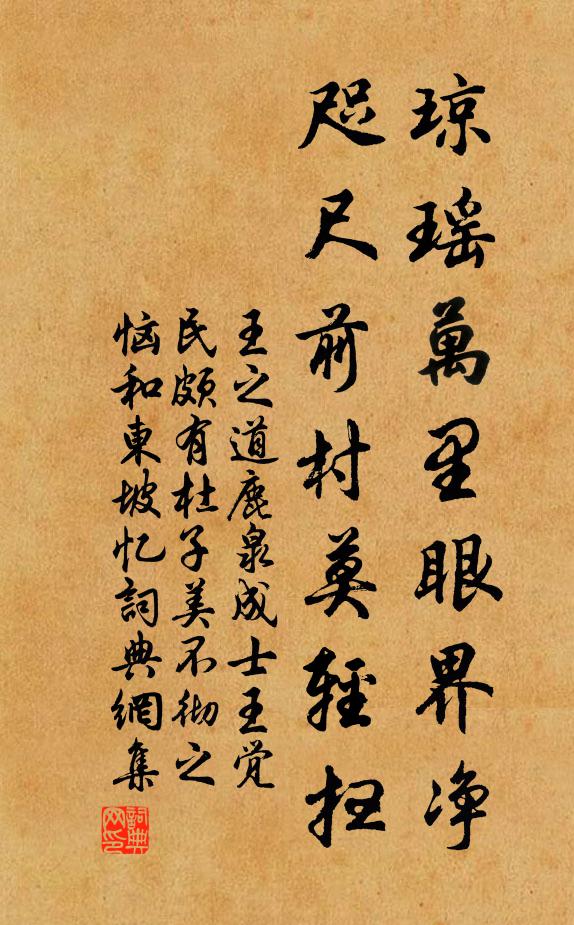 琼瑶萬里眼界净
咫尺前村莫輕枉
王之道鹿泉成士王觉
民頗有杜子美不彻之
恼和東坡忆詞典網集
詞典网印